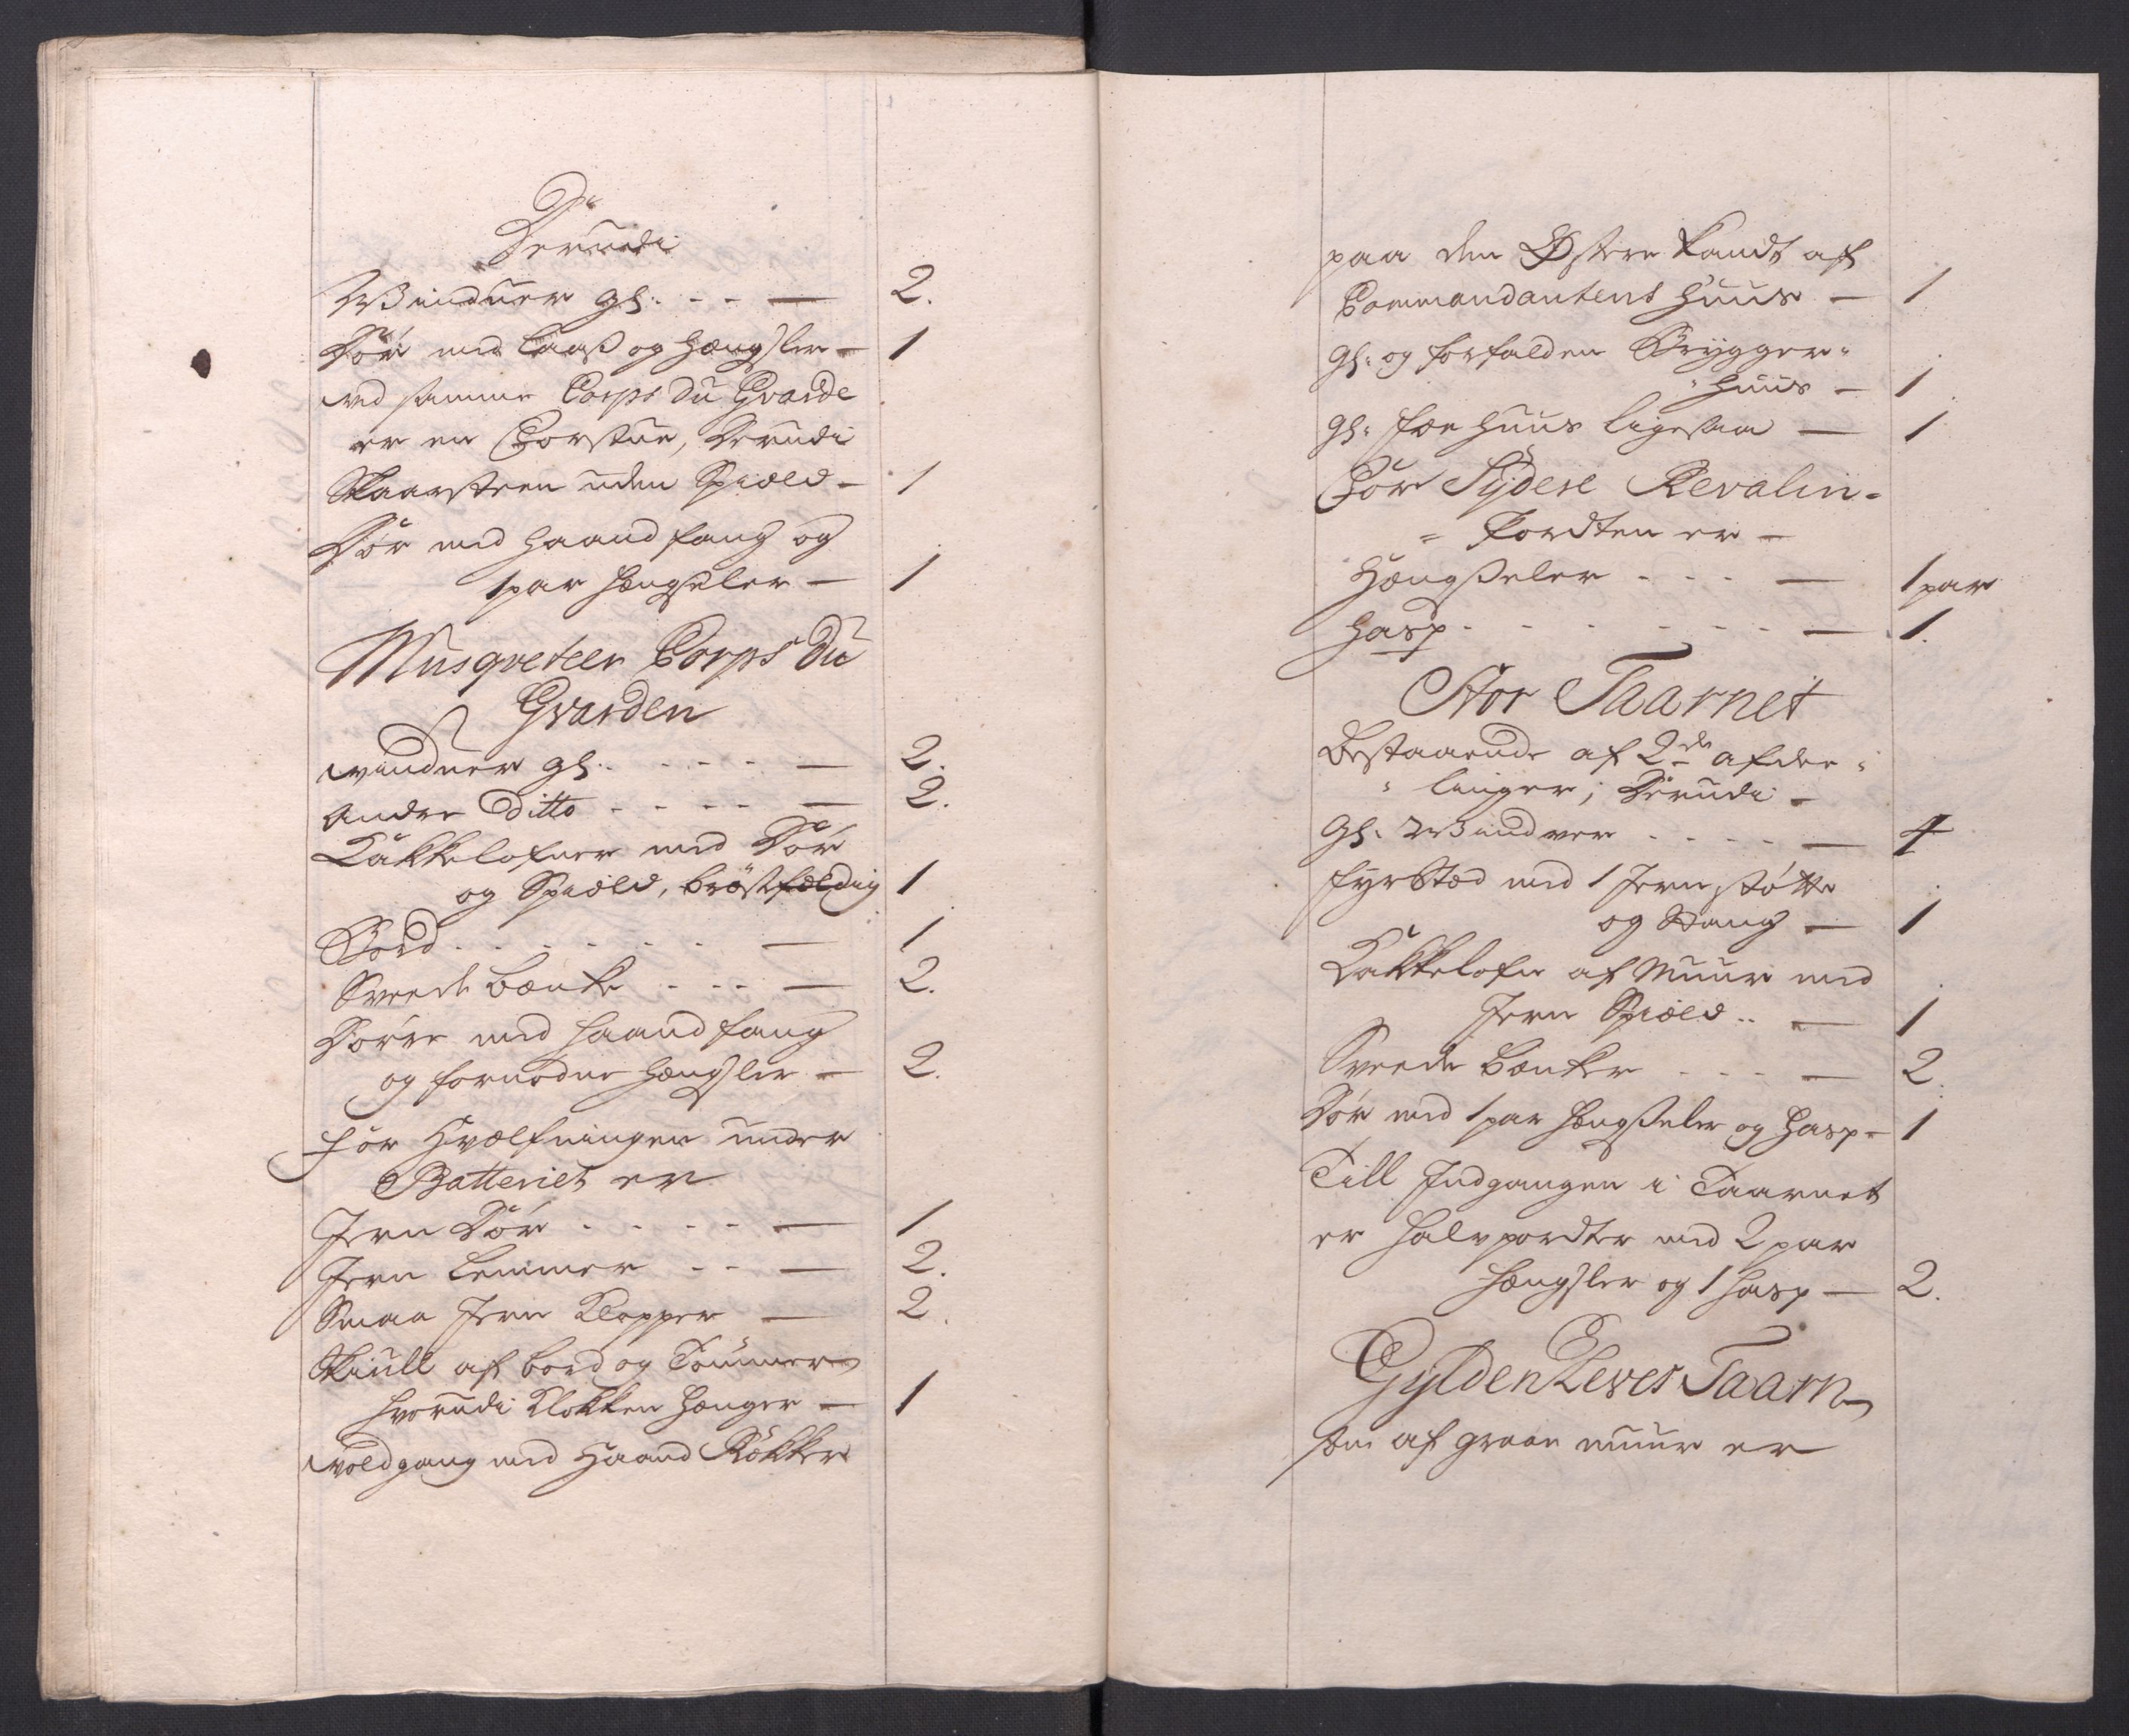 Derudi
Winduer gl: - - — 2.
Dör med Laaß og Hængsler — 1
ved samme Corps du Gvarde
er en Forstue, Derudi
Skaarsteen uden Spiæld — 1
Dör med Haandfang og
1 par Hængseler — 1
Musqveteer Corps du
Gvarden
Vinduer gl. - - - - — 2.
Andre Ditto - - - - — 2.
Kakkelofner med Dör
og Spiæld, bröstfældig 1
Bord - - - - - - — 1
Sveede bænke - - - — 2.
Dörre med Haandfang
og fornödne Hængsler — 2.
For Hvælfningen under
Batteriet er
Jern Dör - - - - — 1
Jern Lemmer - - — 2.
Smaa Jern Klapper — 2.
Skiull af bord og Tömmer
hvorudi Klokken Hænger — 1
Voldgang med Haand Rökker
paa den Østere Kandt af
Commandantens Huus — 1
gl: og forfalden Brygger-
huus — 1
gl: Fæe Huus ligesaa — 1
For Sÿdere Revalin-
= Pordten er —
Hængßeler - - - — 1 par
Hasp - - - - - - — 1.
Stor Taarnet
Bestaaende af 2de afdee-
linger; Derudi —
Gl: Windver - - - - — 4
Fyrstæd med 1 Jern Stötte
og Stang — 1
Kakkelofn af Muur med
Jern Spiæld - — 1
Sveede bænker - - - — 2.
Dör med 1 par Hængßeler og Hasp — 1
Till Indgangen i Taarnet
er Halvpordter med 2 par
Hængsler og 1 Hasp — 2.
GyldenLeves Taarn
som af graae muur er